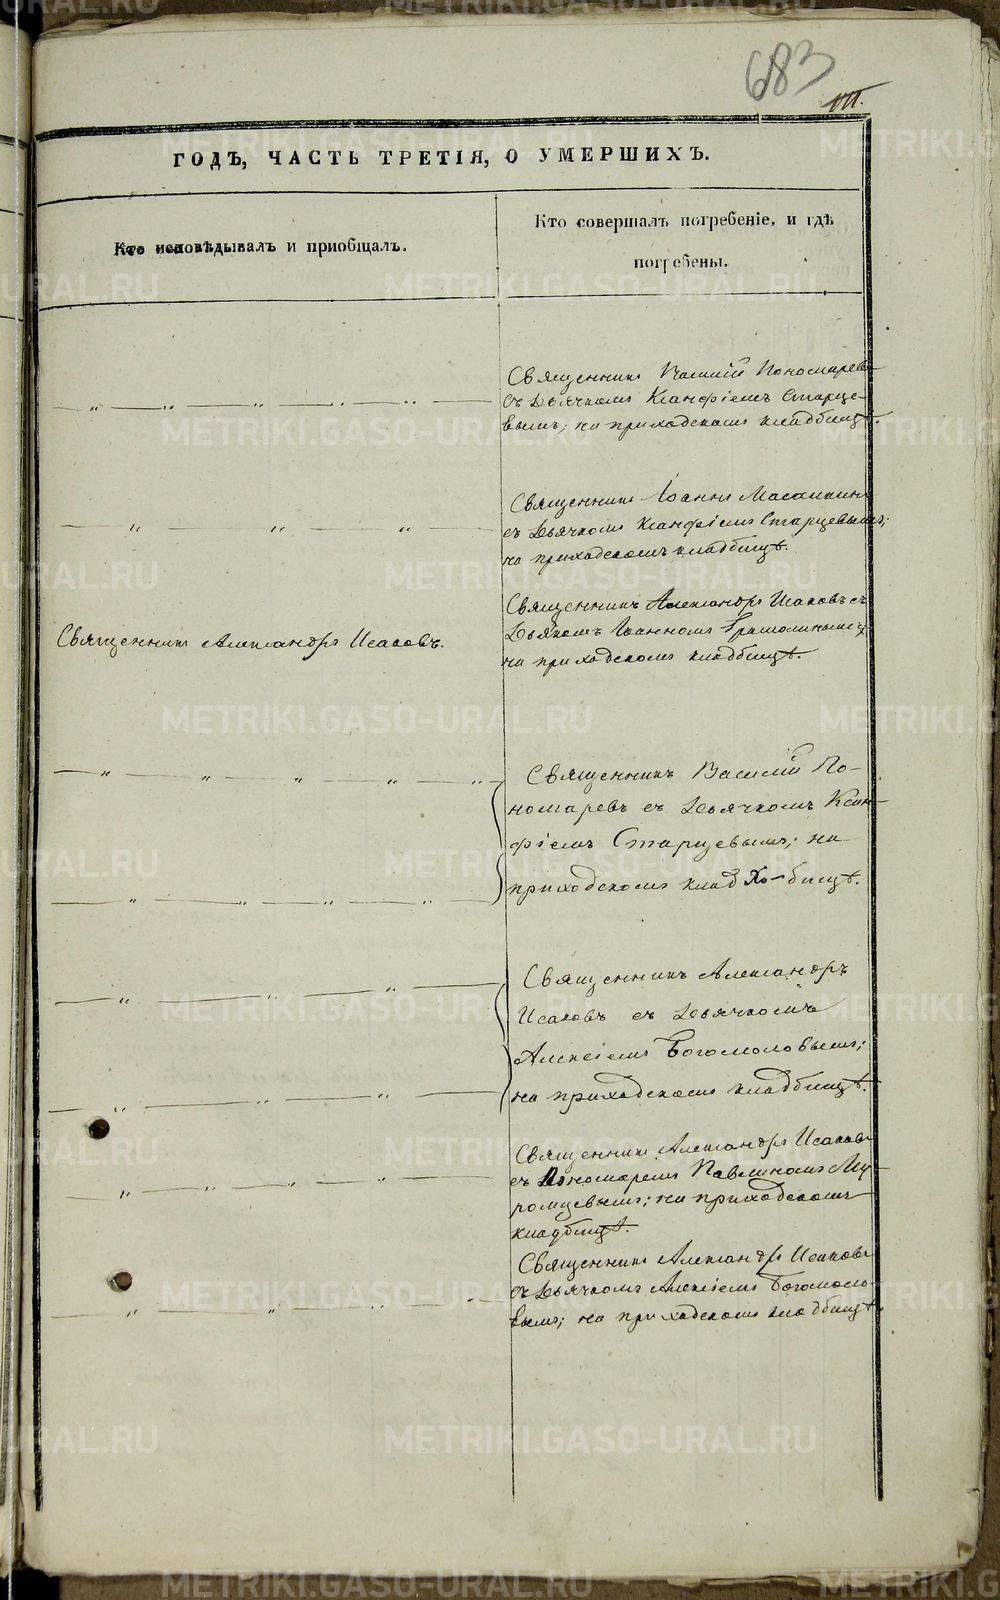 683
ГОДЪ, ЧАСТЬ ТРЕТІЯ, О УМЕРШИХЪ.
Кто исповѣдывалъ и пріобщалъ.
Кто совершалъ погребеніе, и гдѣ
погребены.
Священникъ Василій Пономаревъ
съ Дьячкомъ Ксанфіемъ Старце-
вымъ; на приходскомъ кладбищѣ.
Священникъ Іоаннъ
съ Дьячкомъ Ксанфіемъ Старцевымъ;
на приходскомъ кладбищѣ.
Священникъ Александръ Исаковъ.
Священникъ Александръ Исаковъ съ
Іоанномъ
на приходскомъ кладбищѣ.
Священникъ Василій По-
номаревъ съ Дьячкомъ Ксан-
фіемъ Старцевымъ; на
приходскомъ кладбищѣ.
Священникъ Александръ
Исаковъ съ Дьячкомъ
Алексіемъ Богомоловымъ;
на приходскомъ кладбищѣ.
Священникъ Александръ Исаковъ
съ Пономаремъ Павлиномъ Му-
ромцевымъ; на приходскомъ
кладбищѣ.
Священникъ Александръ Исаковъ
съ Дьячкомъ Алексіемъ Богомоло-
вымъ; на приходскомъ кладбищѣ.
METRIKI.GASO-URAL.RU